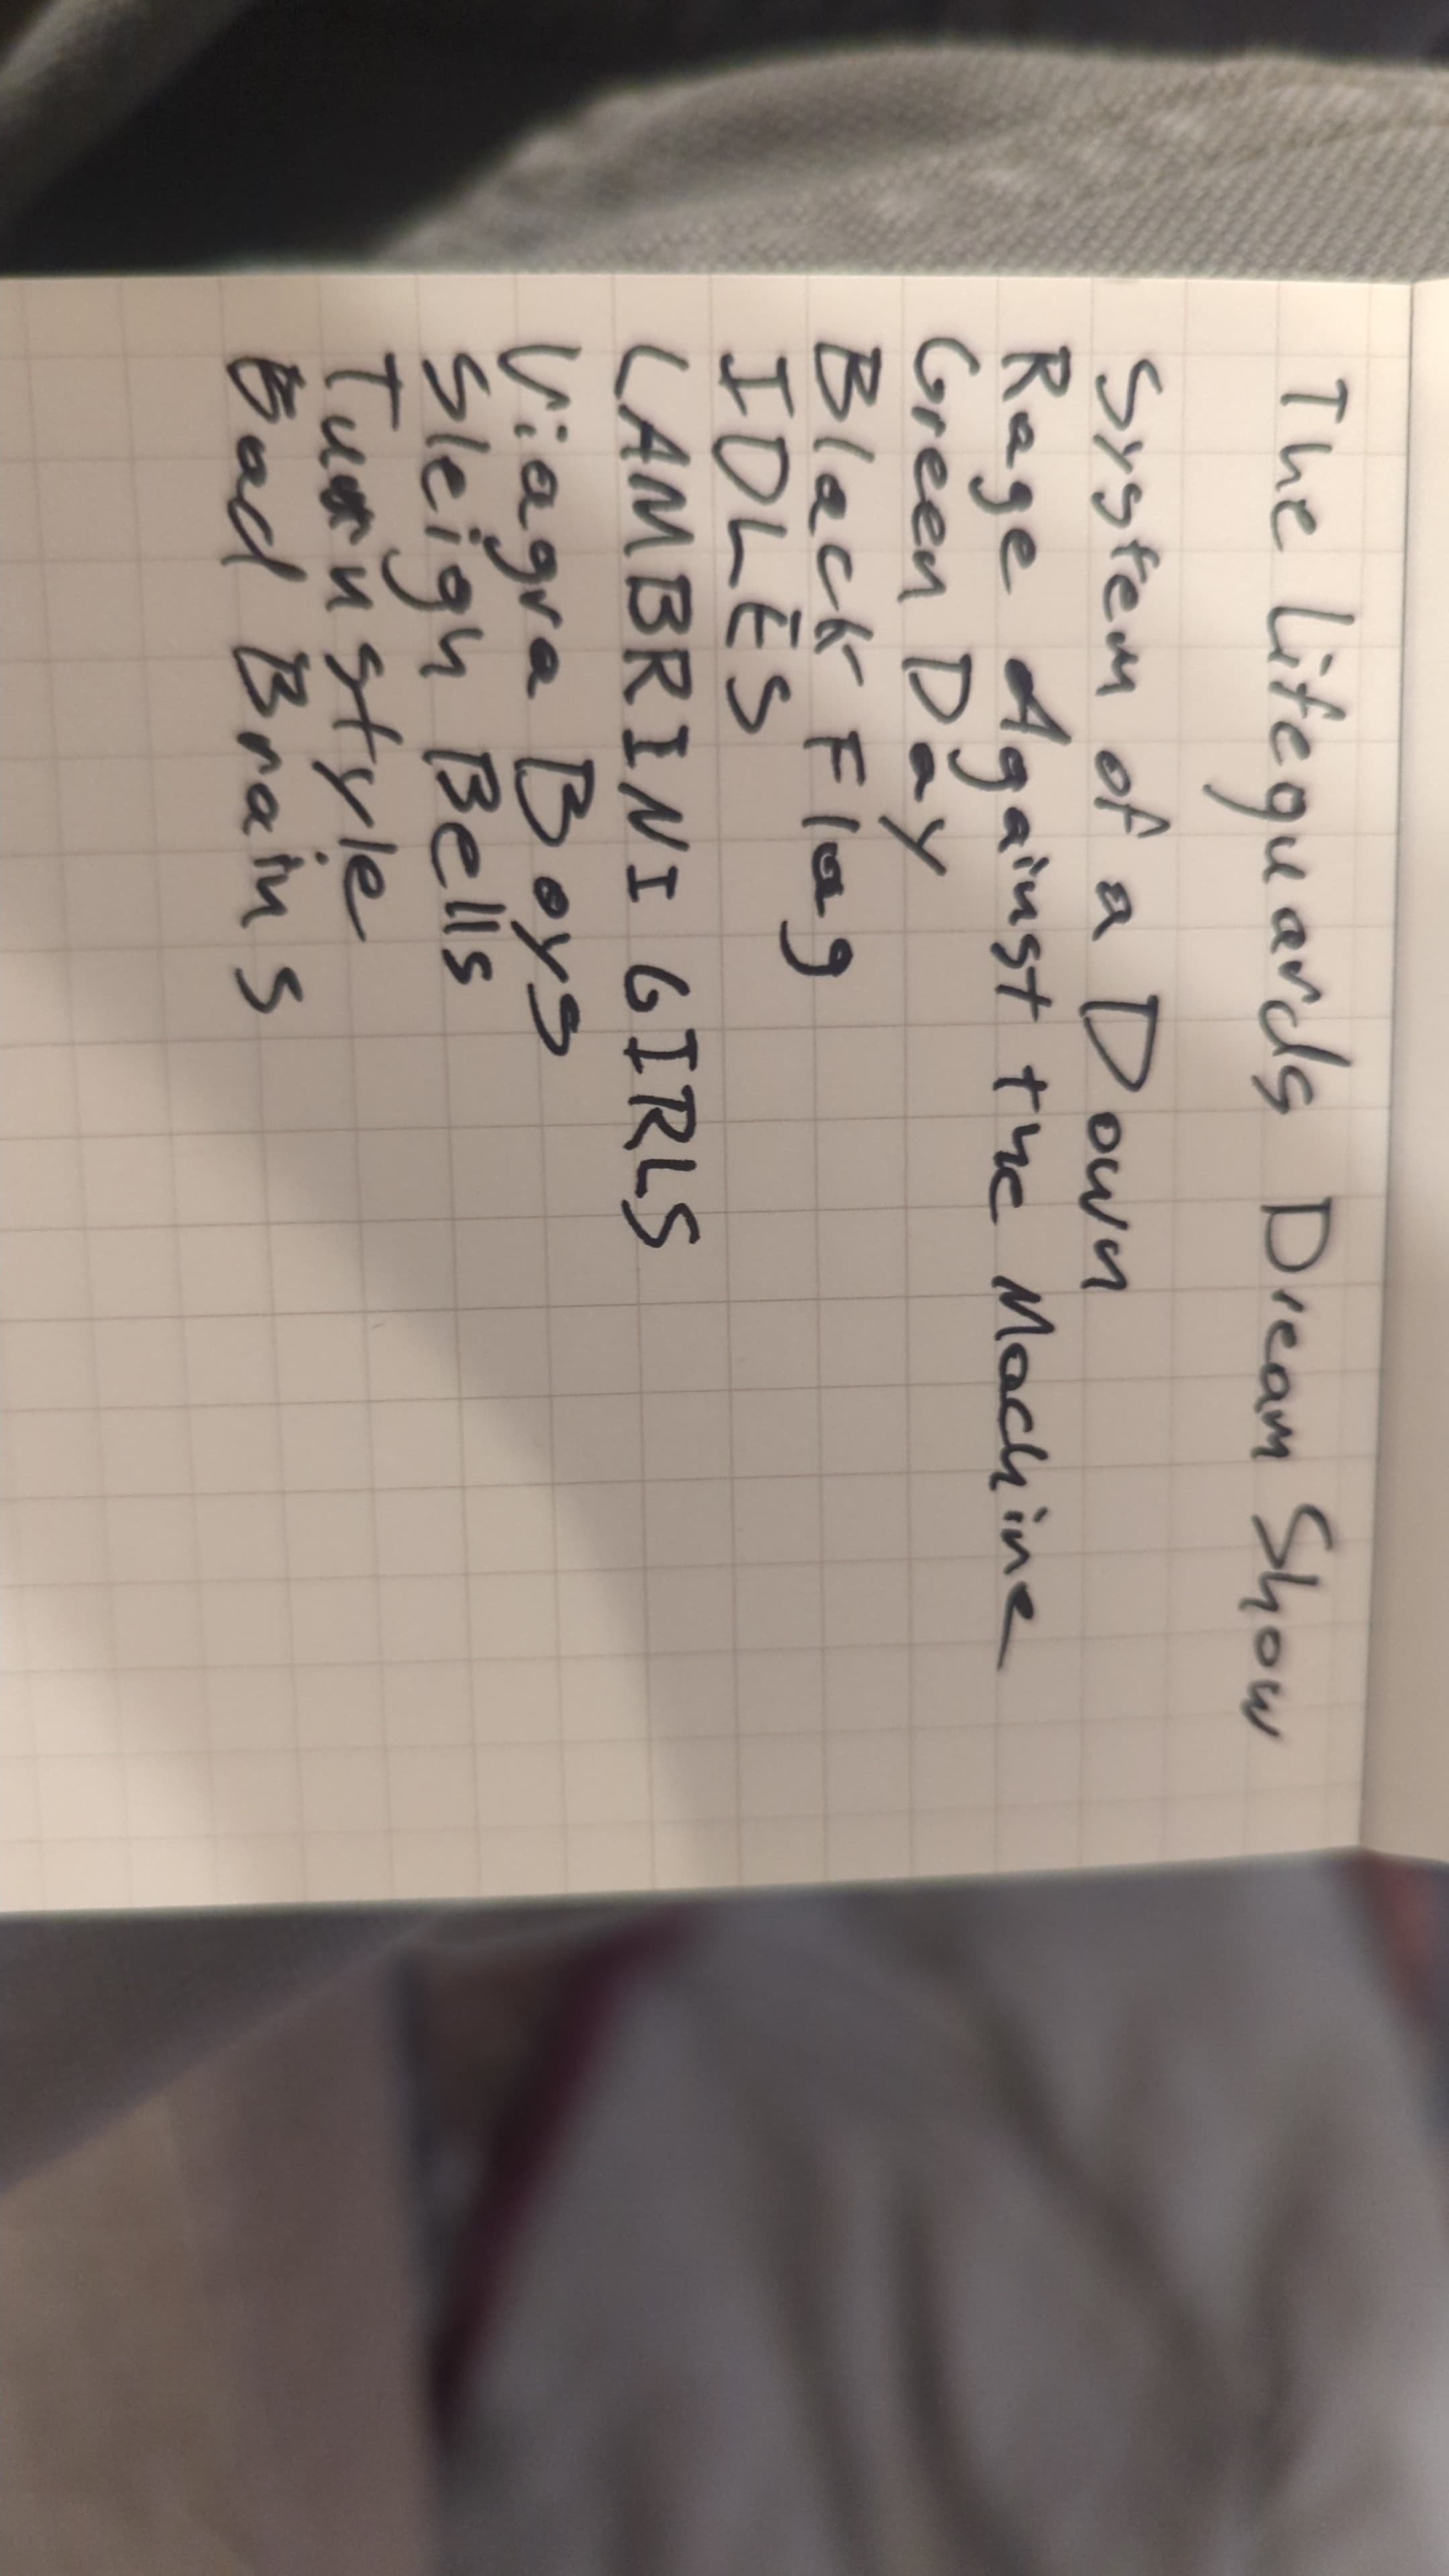 The Lifeguards Dream Show
System of a Down
Rage Against the Machine
Green Day
Black Flag
IDLES
LAMBRINI GIRLS
Viagra Boys
Sleigh Bells
Turnstyle
Bad Brains